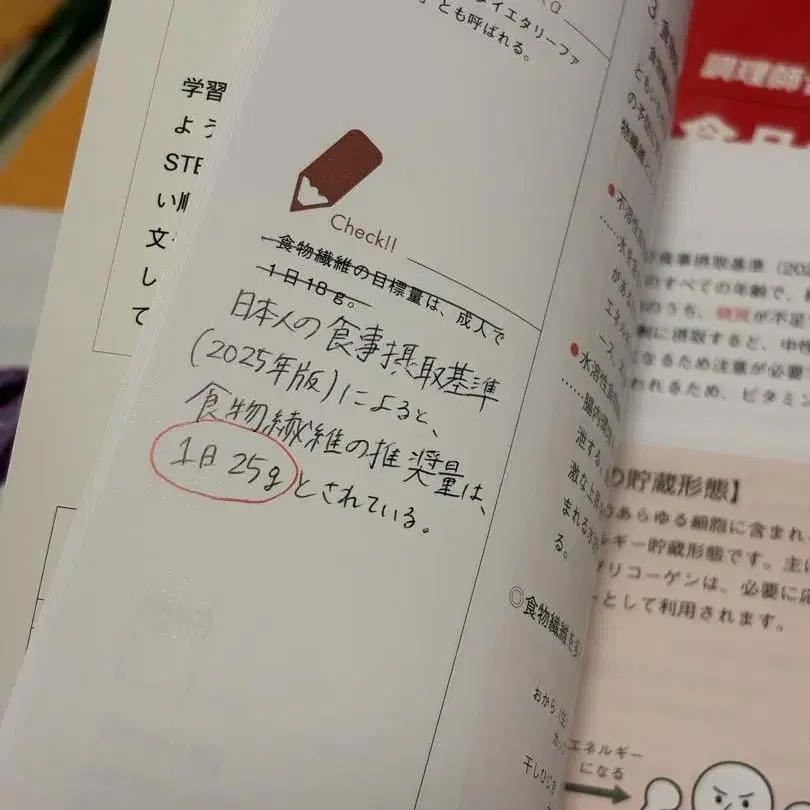 イエタリーファ
とも呼ばれる。
学習
よう
STE
い順
文
して
Check!!
食物繊維の目標量は、成人で
1日18g。
日本人の食事摂取基準
(2025年版)によると、
食物繊維の推奨量は、
1日25gとされている。
3.
とも
の予防
物繊維
不溶性
……水を
があ
エネル
ース、
水溶性食物
……腸内環
泄する。
激な上昇
まれる水
る。
◎食物繊維を多
おから(生)
干しひじき
調理師
食事摂取基準(202
のすべての年齢で、
のうち、糖質が不足
剰に摂取すると、中性
くなるため注意が必要
われるため、ビタミン
の貯蔵形態】
のあらゆる細胞に含まれ
ルギー貯蔵形態です。主に
グリコーゲンは、必要に応
ーとして利用されます。
エネルギー
になる